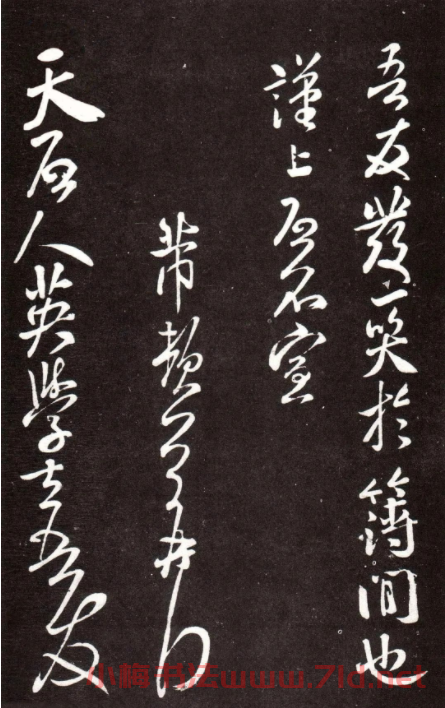 吾友發一笑於簿間也
謹上啟不宣
芾頓首再拜
天啟人英學士吾友
小梅书法www.7ld.net